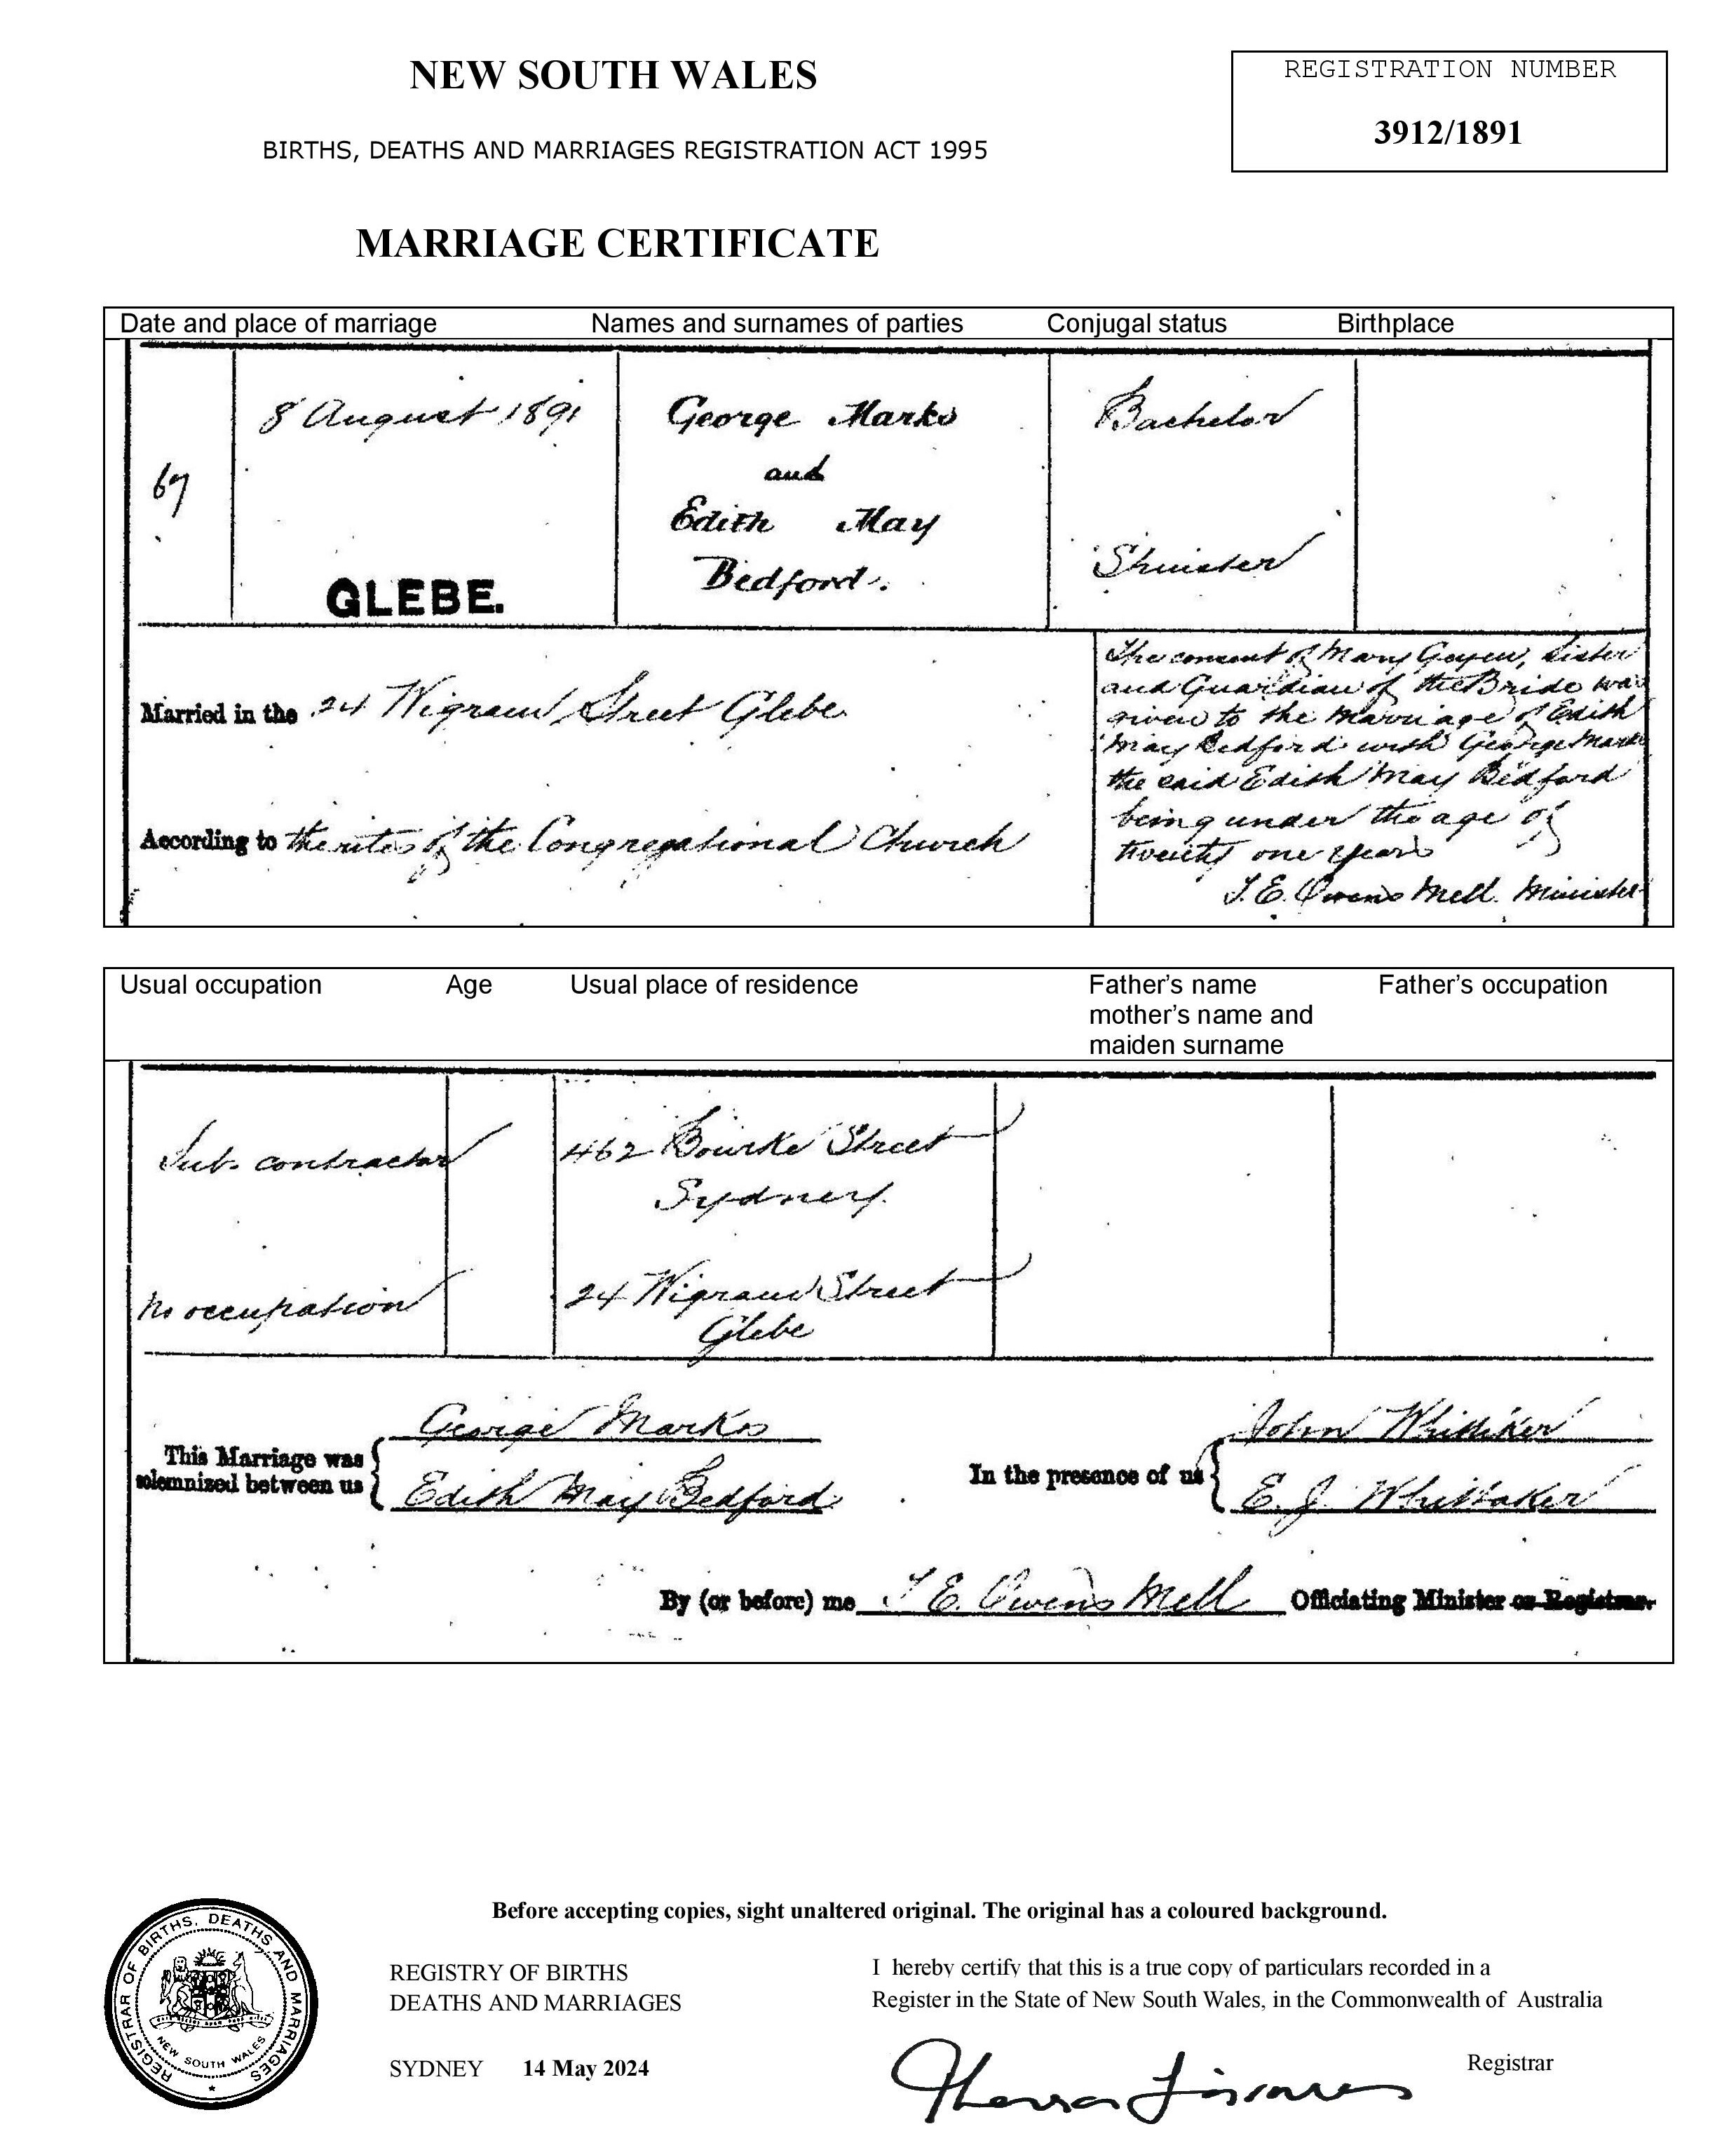 NEW SOUTH WALES
REGISTRATION NUMBER
3912/1891
BIRTHS, DEATHS AND MARRIAGES REGISTRATION ACT 1995
MARRIAGE CERTIFICATE
Date and place of marriage Names and surnames of parties Conjugal status Birthplace
67
8 August 1891
GLEBE.
George Marks
and
Edith May
Bedford.
Bachelor
Spinster
Married in the 24 Wigram Street Glebe
According to the rites of the Congregational Church
The consent of Mary Goyen, sister
and Guardian of the Bride was
given to the marriage of Edith
May Bedford with George Marks
the said Edith May Bedford
being under the age of
twenty one years
T. E. Owens Mell. Minister
Usual occupation Age Usual place of residence Father's name Father's occupation
mother's name and
maiden surname
Sub. contractor
462 Bourke Street
Sydney.
No occupation
24 Wigram Street
Glebe
This Marriage was
solemnized between us
George Marks
Edith May Bedford
In the presence of us
John Whittiker
E. J. Whittaker
By (or before) me T E. Owens Mell Officiating Minister or Registrar.
Before accepting copies, sight unaltered original. The original has a coloured background.
REGISTRAR OF BIRTHS, DEATHS AND MARRIAGES
NEW SOUTH WALES
REGISTRY OF BIRTHS
DEATHS AND MARRIAGES
SYDNEY 14 May 2024
I hereby certify that this is a true copy of particulars recorded in a
Register in the State of New South Wales, in the Commonwealth of Australia
Registrar